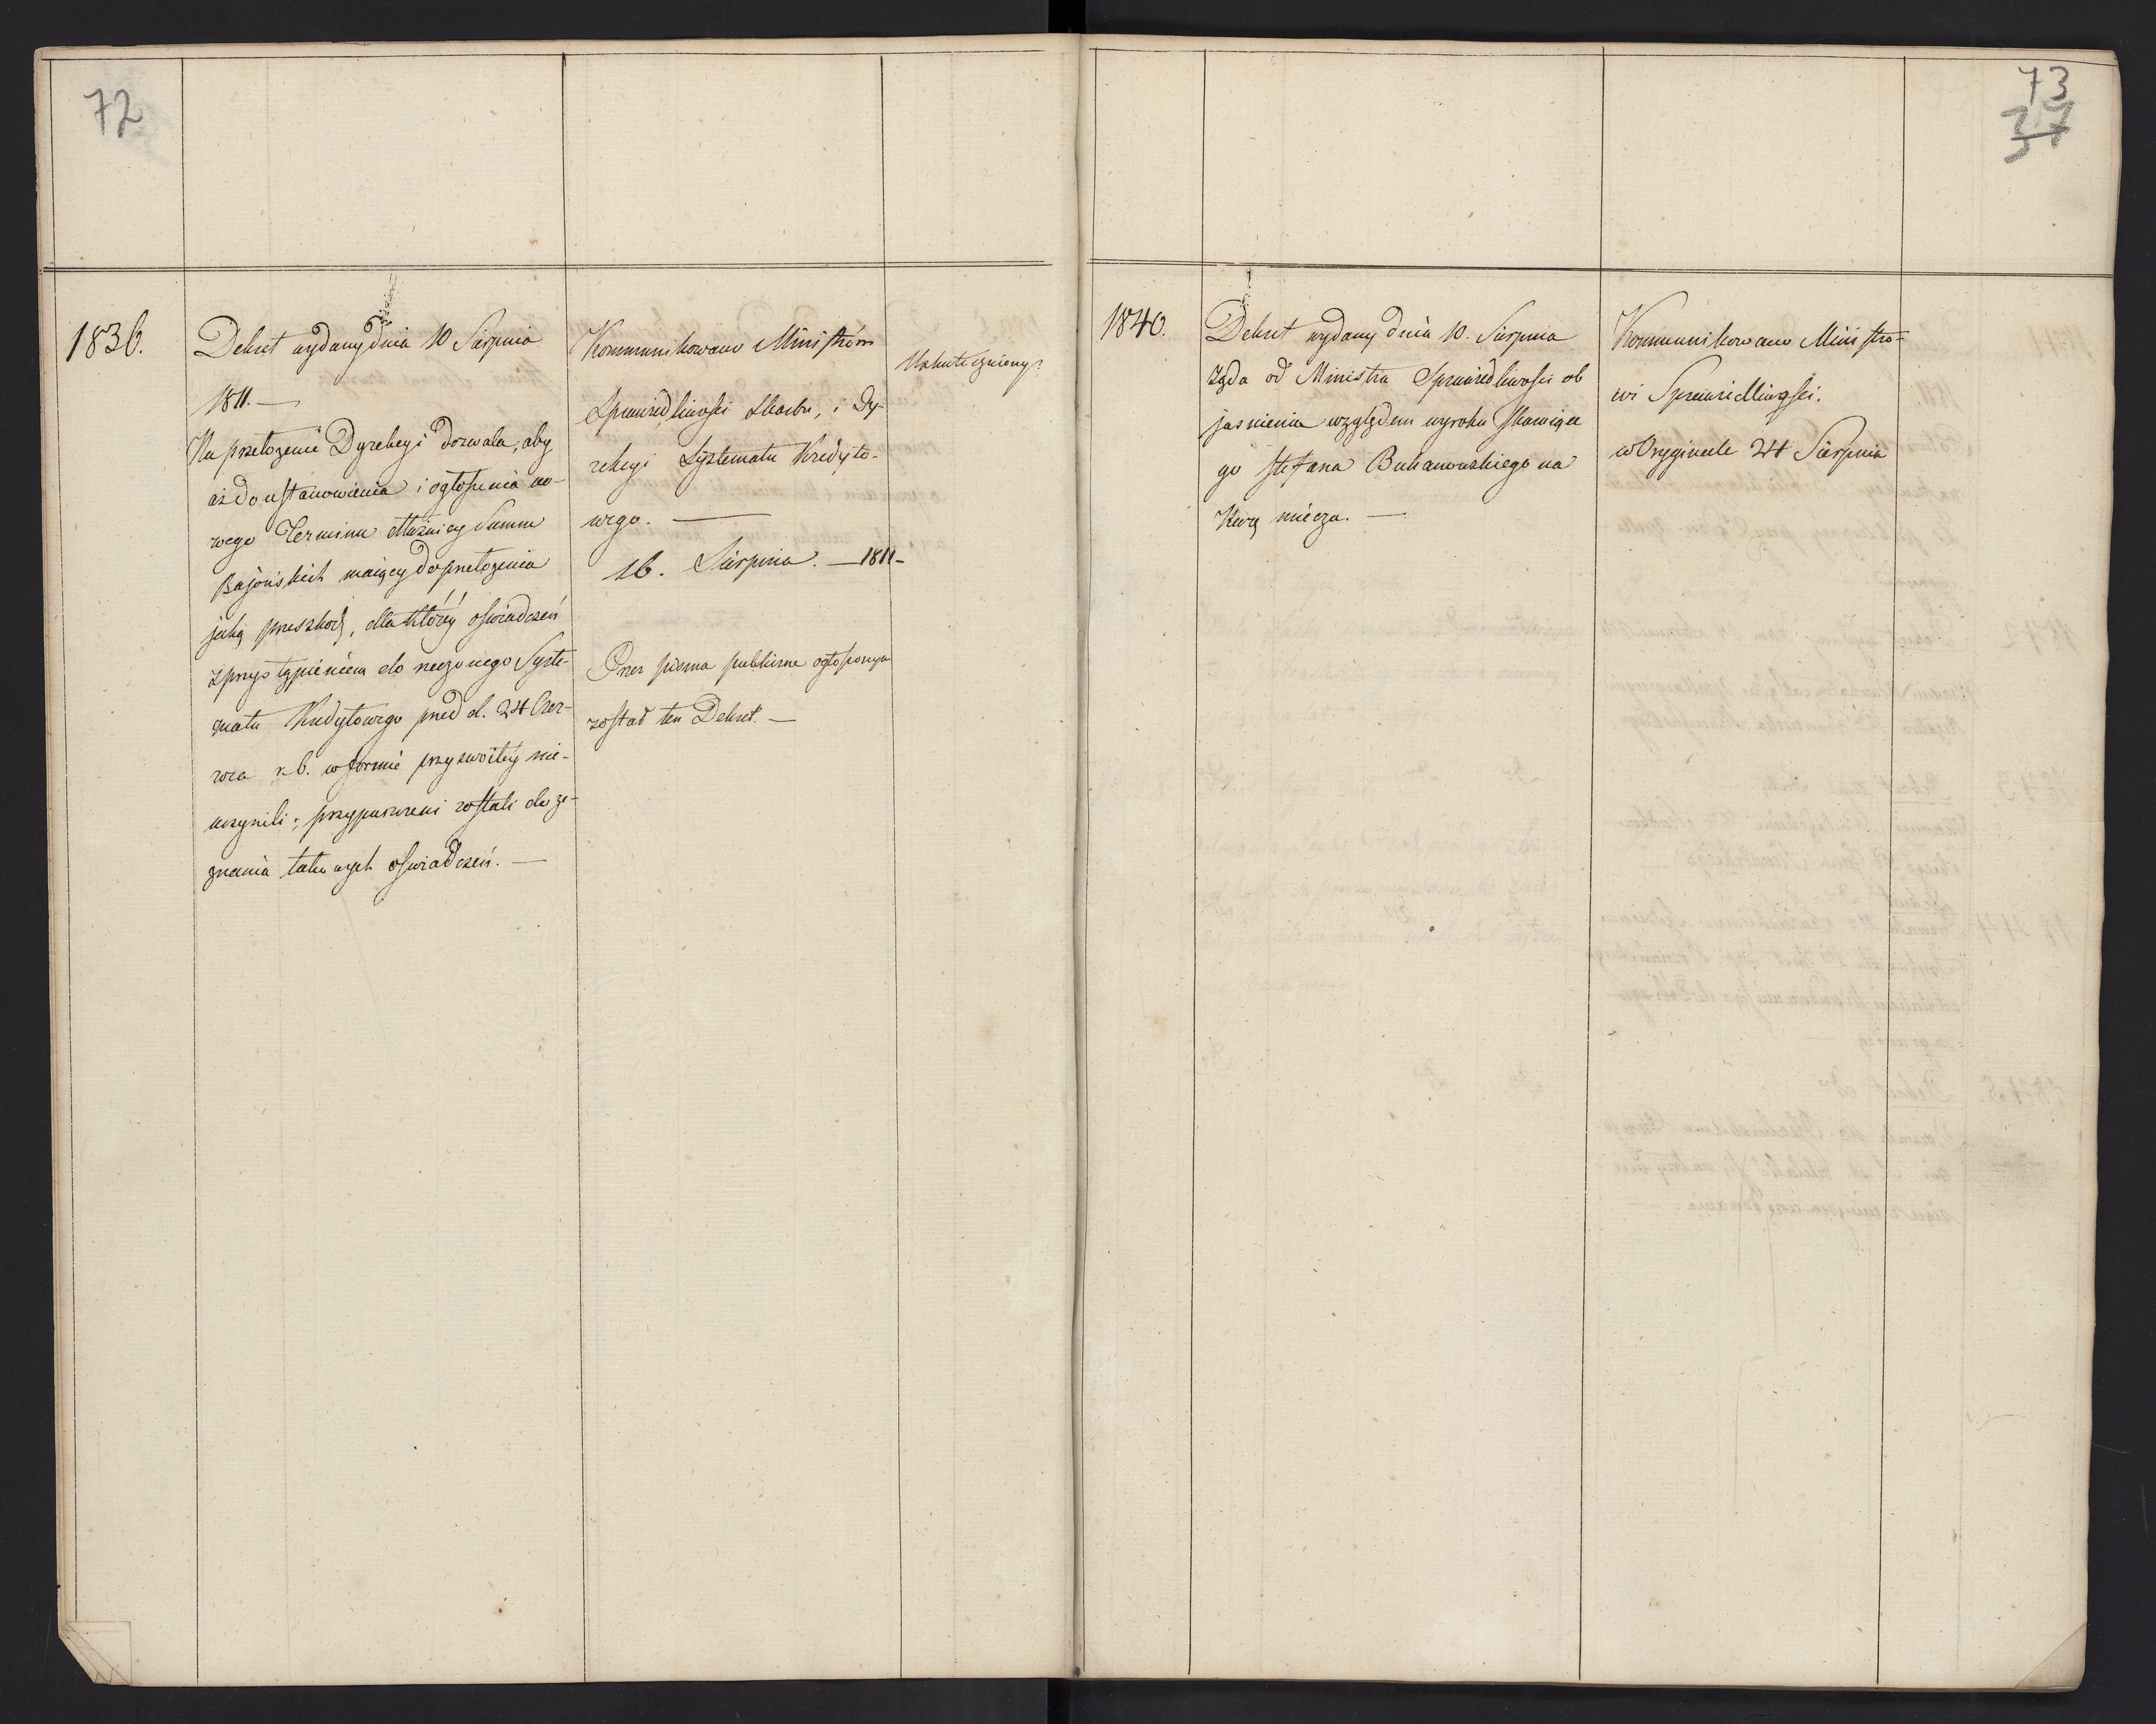 72
1836.
Dekret wydany dnia 10 Sierpnia
1811. —
Na przełożenie Dyrekcyi dozwala, aby
aż do ustanowienia i ogłoszenia no-
wego Terminu dłużnicy Summ
Bajońskich maiący do przełożenia
jaką przeszkodę, dla któréy oświadczeń
z przystąpieniem do rzeczonego Syste-
matu Kredytowego przed d. 24 Czer-
wca r.b. w formie przyzwoitéy nie-
uczynili; przypuszczeni zostali do ze-
znania takowych oświadczeń. —
Kommunikowano Ministróm
Sprawiedliwości Skarbu, i Dy-
rekcyi Systematu Kredyto-
wego. —
16. Sierpnia. — 1811 -
Przez pisma publiczne ogłoszonym
został ten Dekret. —
Uskuteczniony
73
37
1840.
Dekret wydany dnia 10. Sierpnia
żąda od Ministra Sprawiedliwości ob
jasnienia względem wyroku skazujące
go Stefana Bukanowskiego na
Karę miecza. —
Kommunikowano Ministro-
wi Sprawiedliwości.
w Oryginale 24 Sierpnia